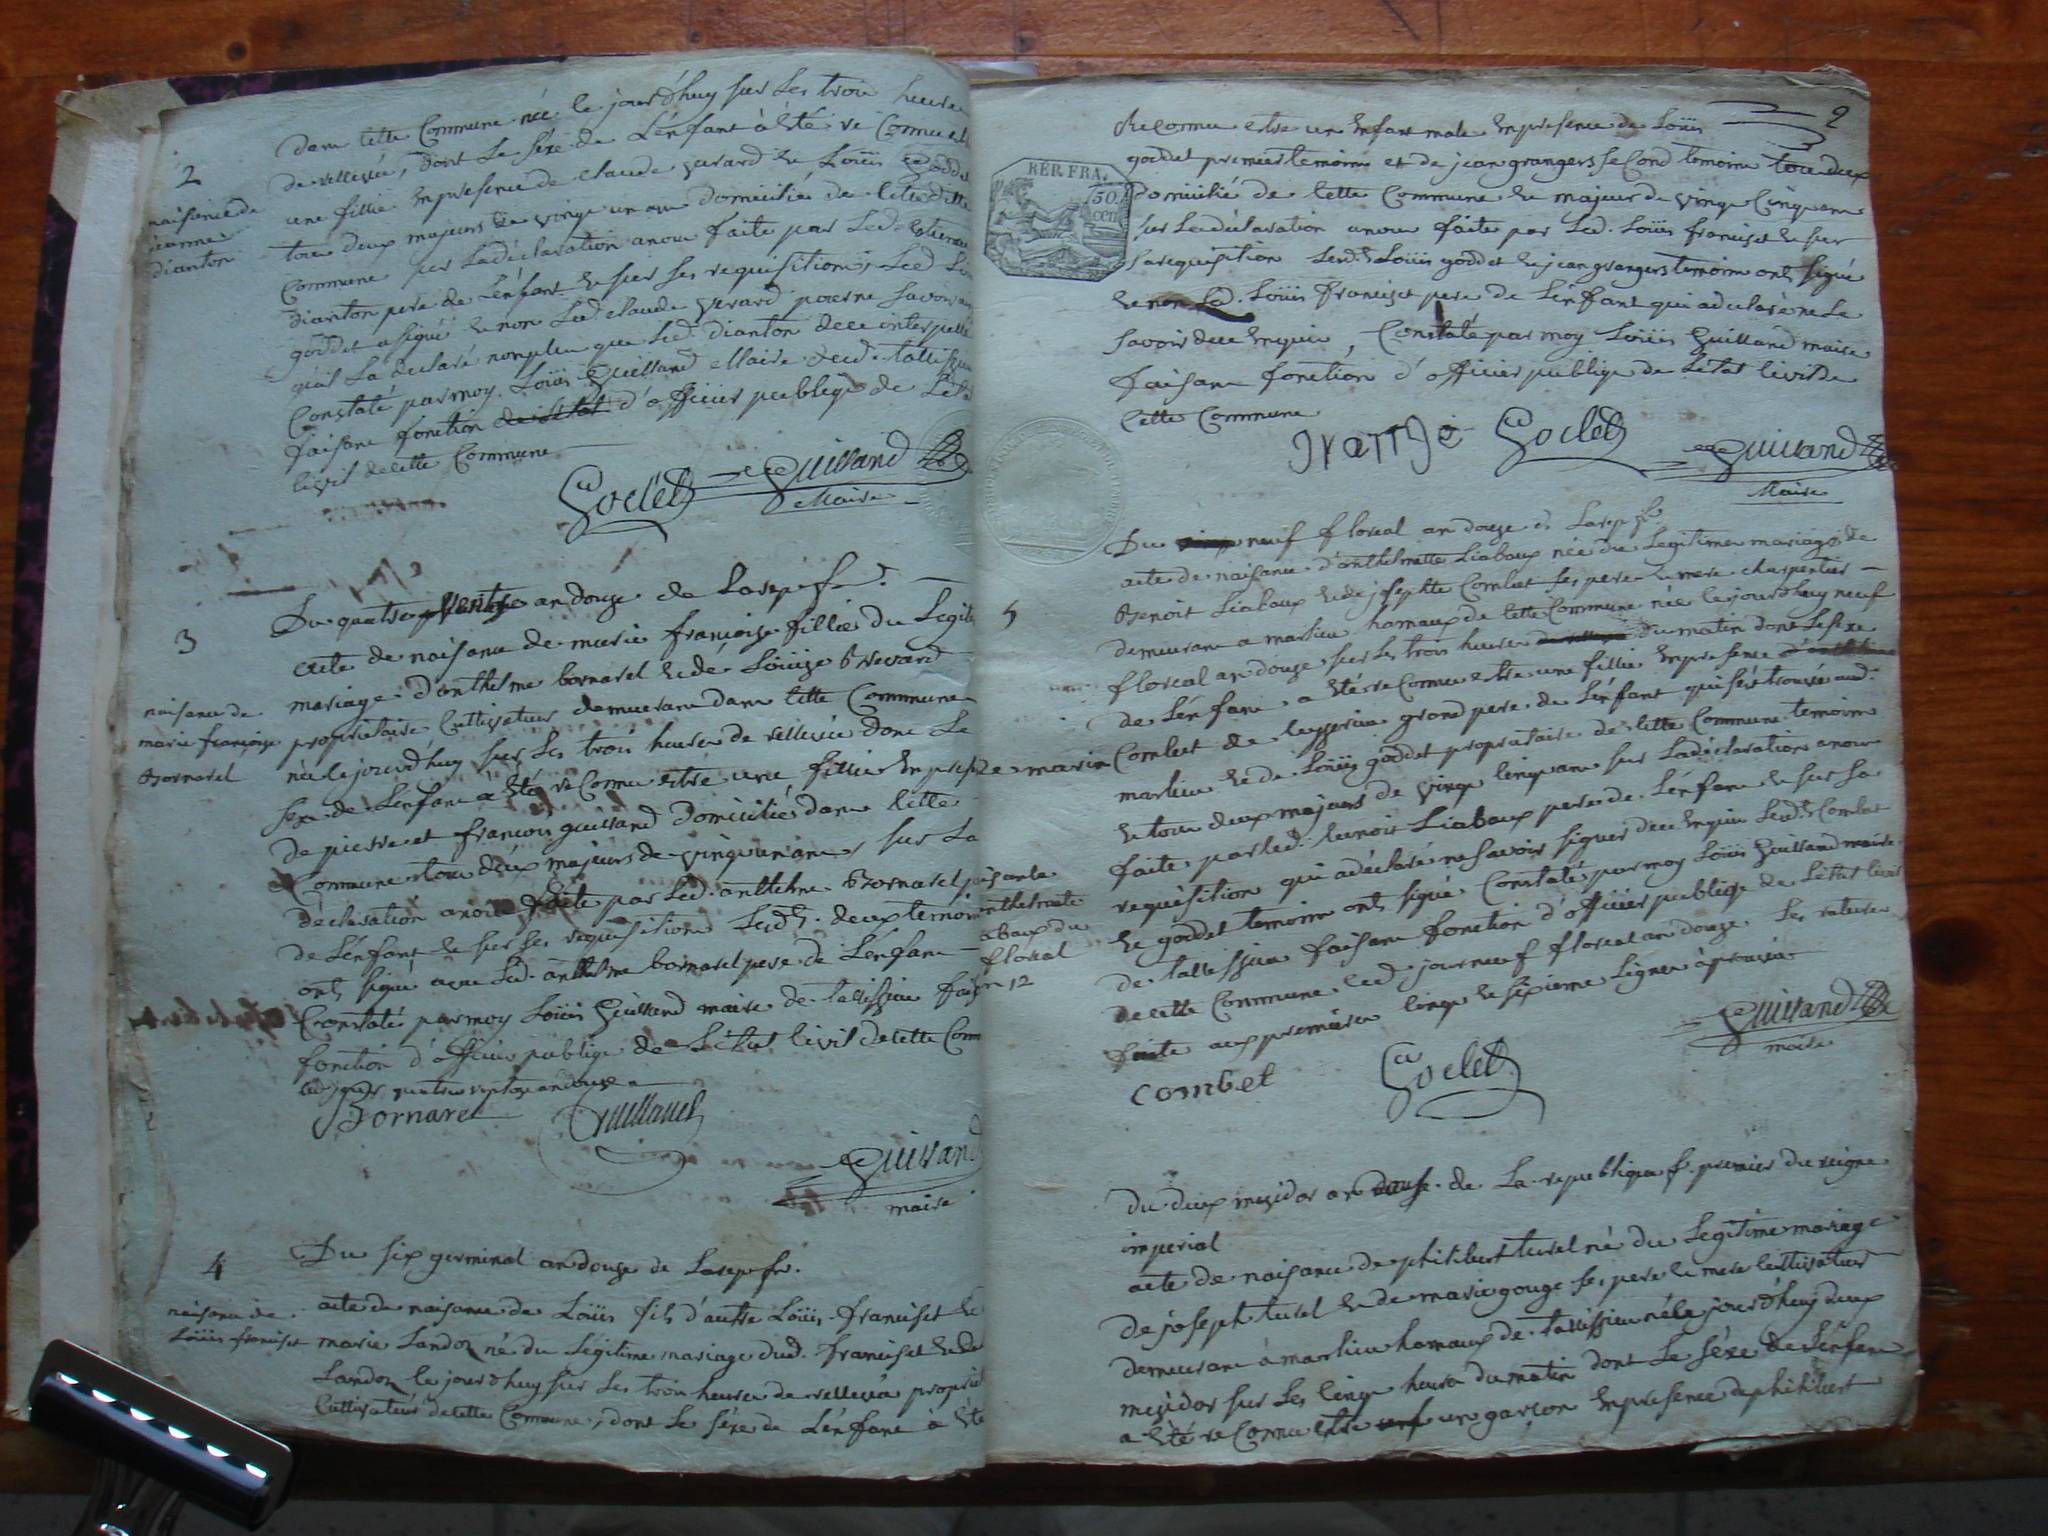 dans cette Commune née le jourd'huy sur les trois heures
2
de rellevée, dont le séxe de L'enfant à Eté re Connu et
naisance de
jeanne
dianton
une fillie En presence de claude gerard Et Loüis goddet
tous deux majeurs de vingt un ans domiciliés de cette ditte
Commune sur La déclaration à nous faite par Led. Etienne
dianton pere de L'enfant Et sur ses requisitions Led. Loüis
goddet a signé Et non Led. claude gerard pour ne savoir
qu'il La declaré nonplus que Led. dianton de ce interpellé
Constaté par moy Loüis Guilland Maire dud. tallissieu
faisant fonction d'officier publiqe de L'Etat
Civil de cette Commune
Goddet Guilland
Maire
3
Du quatre ventose an douze de La rep. f.
acte de naisance de marie françoise fillie du Legit
mariage d'anthelme bornarel Et de Loüise Brevard
naisance de
marie françoise
Bornarel
propriétaire Cultivateur demeurant dans cette Commune
née le jourd'huy sur Les trois heures de rellevée dont Le
sexe de L'enfant a Eté re Connu Etre une fillie En presence
de pierre et francois guilland Domiciliés dans cette
Commune tous deux majeurs de vingt un ans sur La
déclaration à nous faite par Led. anthelme Bornarel
de L'enfant Et sur ses requisitions Lesd. deux temoins
ont signé avec Led. anthelme bornarel pere de L'enfant
Constaté par moy Loüis Guilland maire de tallissieu
fonction d'officier publiqe de L'Etat Civil de cette Com
Led. jour quatre ventose an douze
Bornarel Guilland
Guilland
maire
4
Du six germinal an douze de La rep. fr.
naisance de
Loüis franciset
acte de naisance de Loüis fils d'autre Loüis franciset Et
marie Landoz né du Légitime mariage dud. franciset Et de
Landoz le jourd'huy sur Les trois heures de rellevée
Cultivateur de cette Commune, dont Le séxe de L'enfant à Eté
2
Reconnu estre un Enfant male En presence de Loüis
goddet premier temoins et de jean grangers second temoins tous deux
REP. FRA.
50
cen
Domicilié de cette Commune Et majeur de vingt Cinq ans
sur La déclaration a nous faite par Led. Loüis franciset Et sur
sa requisition Lesd. Loüis goddet Et jean grangers temoins ont signé
Et non Led. Loüis franciset pere de L'enfant qui a declaré ne Le
savoir de ce Enquis, Constaté par moy Loüis Guilland maire
faisant fonction d'officier publiqe de L'Etat Civil de
cette Commune
Goddet Guilland
Maire
Du neuf floreal an douze de La rep. fr.
acte de naisance d'anthelmette Liabaux née du Legitime mariage de
5
Benoit Liabaux Et de josephte Combet ses pere Et mere charpentier
demeurant a marlieu hamaux de cette Commune née le jourd'huy neuf
floreal an douze sur Les trois heures du matin dont Le sexe
de L'enfant a Eté re Connu Etre une fillie En presence
de marin Combet de leysrieu grand pere de L'enfant qui s'est trouvé aud.
marlieu Et de Loüis goddet propriétaire de cette Commune temoins
Et tous deux majeurs de vingt Cinq ans sur La déclaration a nous
faite par led. benoit Liabaux pere de L'enfant Et sur sa
requisition qui a déclaré ne savoir signer de ce Enquis Lesd. Combet
naisance
anthelmette
Liabaux du
floreal
an 12
Et goddet temoins ont signé. Constaté par moy Loüis Guilland maire
de tallissieu faisant fonction d'officier publiqe de L'Etat Civil
de cette Commune led. jour neuf floreal an douze. Les ratures
faite aux premieres Cinq Et sixieme Lignes aprouvée
Guilland
maire
combet Goddet
du deux mesidor an douse de La republique f. premier du reigne
imperial
acte de naisance de philibert turel né du Legitime mariage
de joseph turel Et de marie gouge ses pere Et mere Cultivateur
demeurant à marlieu hamaux de tallissieu né le jourd'huy deux
mesidor sur Les Cinq heures du matin dont Le séxe de L'enfant
a Eté re Connu Etre un garcon En presence de philibert